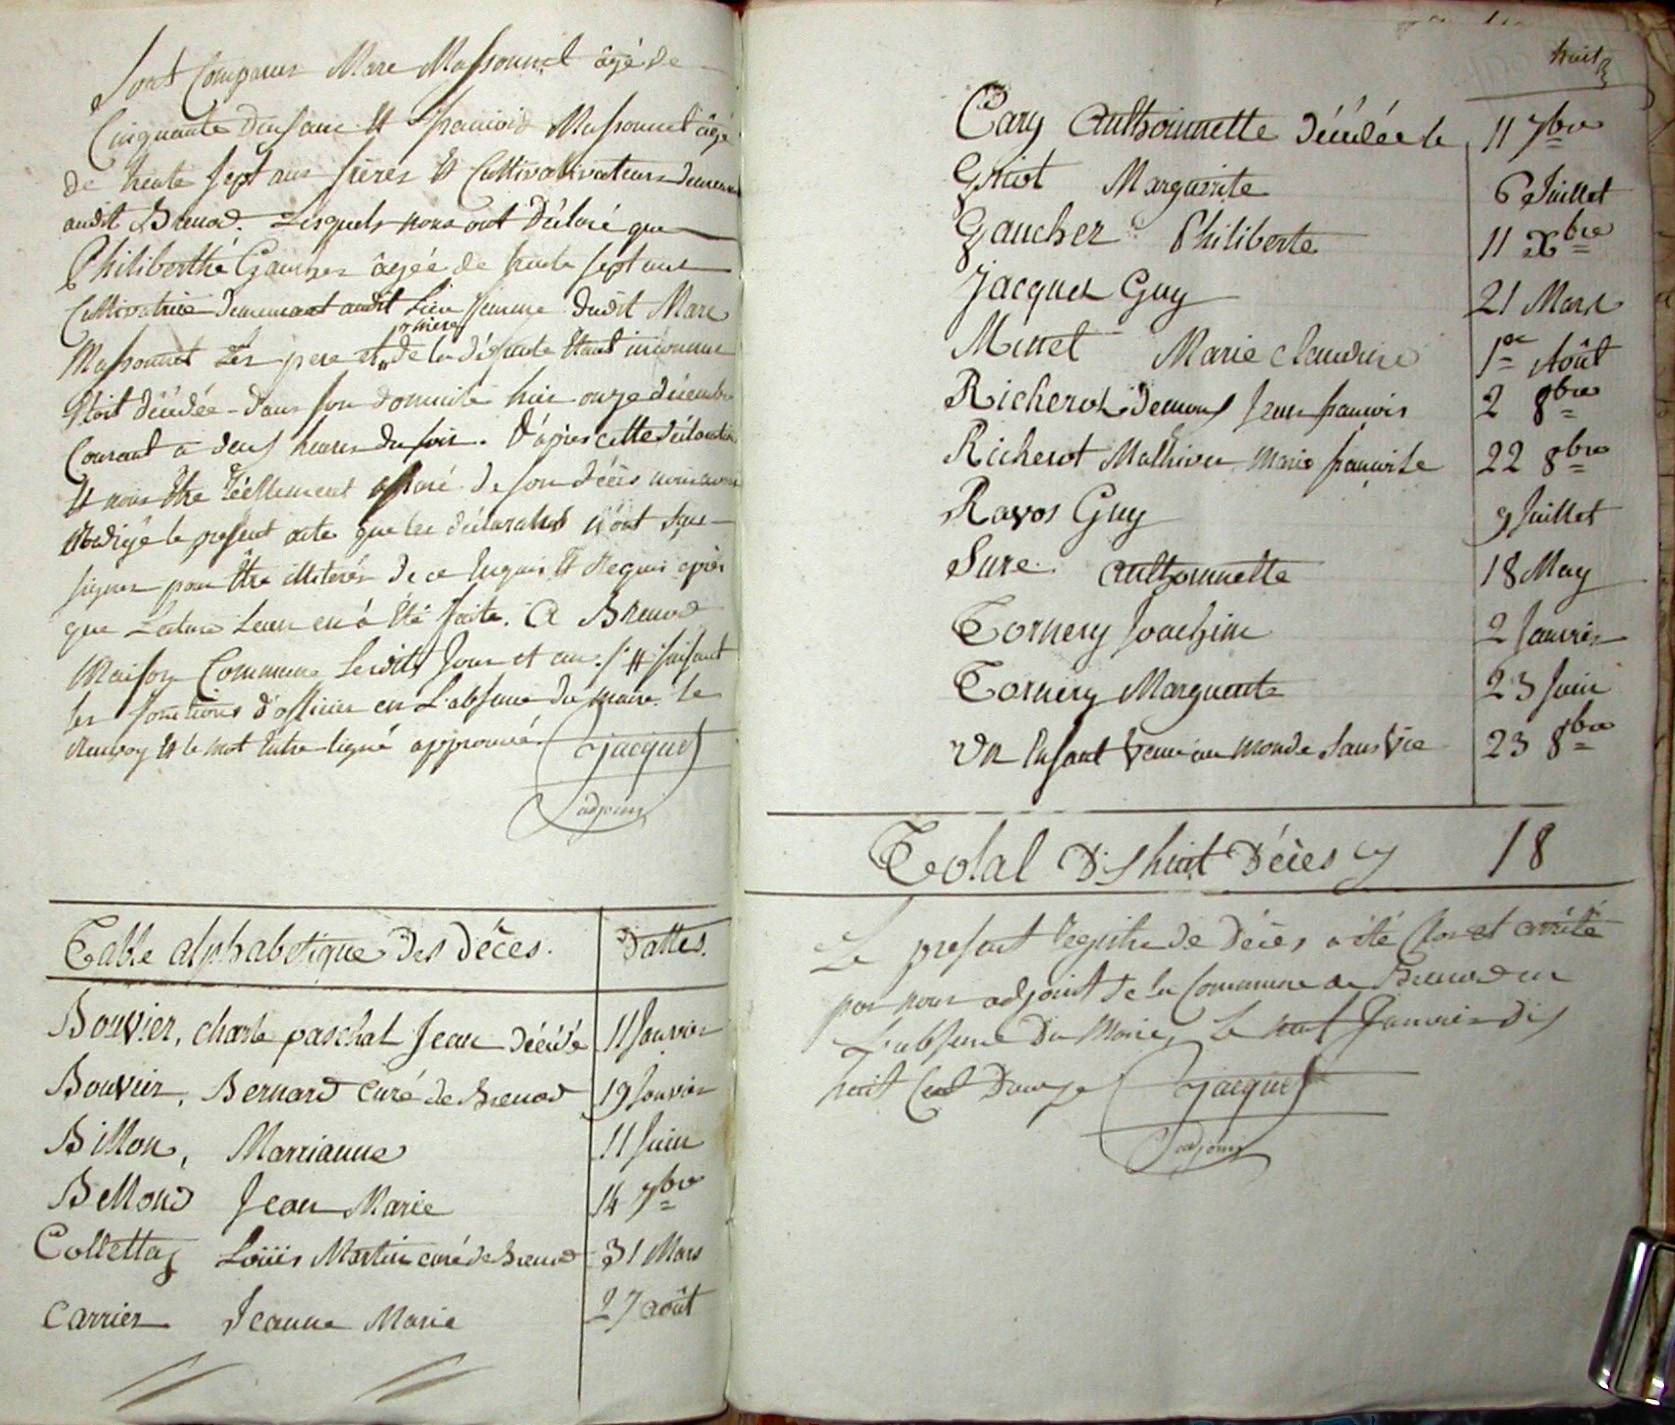 Sont Comparus Marc Massonnet âgé de
Cinquante deux ans et françois Massonnet âgé
de trente sept ans frères et Cultivativateurs
audit Brenod. Lesquels nous ont Déclaré que
Philiberthe Gaucher âgée de trente sept ans
Cultivatrice demeurant audit Lieu femme dudit Marc
Massonnet Les pere et
mere
de la défunte étant inconnus
étoit décédée dans son domicile hier onze décembre
Courant a deux heures du soir. D'après cette déclaration
et nous être réellement assuré de son décès nous avons
Redigé le present acte que les déclarants n'ont sous
signer pour être illeterés de ce Enquis et Requis après
que Lecture Leur en a été faite. A Brenod
Maison Commune Lesdits Jour et an. faisant
les fonctions d'officier en L'absence du maire. le
Renvoy et le mot Entre-ligné approuvé
Jacquet
adjoint
Table alphabetique Des décès. Dattes.
Bouvier, charle paschal Jean Décédé 11 Janvier
Bouvier, Bernard Curé de Brenod 19 Janvier
Billon, Marrianne 11 Juin
Bellond Jean Marie 14 7bre
Collettaz Loüis Martin curé de brenod 31 Mars
Carrier Jeanne Marie 27 août
huit
Cary Anthoinnette Décédée le 11 7bre
Griot Marguerite 6 Juillet
Gaucher Philiberte 11 Xbre
Jacquet Guy 21 Mars
Minet Marie Claudine 1er Août
Richerot Demons Jean françois 2 8bre
Richerot Mathieu Marie françoise 22 8bre
Ravos Guy 9 Juillet
Sure Anthoinnette 18 May
Tornery Joachim 2 Janvier
Tornery Marguerite 23 Juin
Un Enfant Venu au monde sans Vie 23 8bre
Total Dix huit Décès cy 18
Le present registre de Décès a été Clos et arrêté
par nous adjoint de la Commune de Brenod en
L'absence Du Maire, Le huit Janvier Dix
huit Cent Douze Jacquet
adjoint